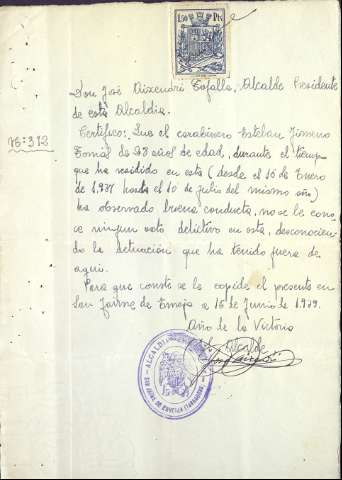 1,50 Pts
Don José Aixendri Tafalla, Alcalde Presidente
de esta Alcaldia.
76:312
Certifico: Que el carabinero Esteban Jimeno
Tomás de 28 años de edad, durante el tiempo
que ha residido en esta (desde el 16 de Enero
de 1.937 hasta el 10 de julio del mismo año)
ha observado buena conducta, no se le cono-
ce ningun acto delitivo en esta, desconocien-
do la actuación que ha tenido fuera de
aqui.
Para que conste se la expide el presente en
San Jaime de Enveja a 16 de Junio de 1.939.
Año de la Victoria
El Alcalde
ALCALDIA
SAN JAIME DE ENVEIJA (TARRAGONA)